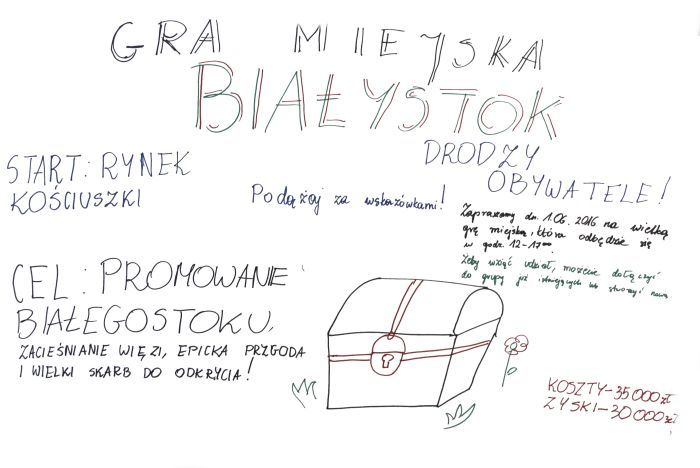 GRA MIEJSKA
BIAŁYSTOK
START: RYNEK
KOŚCIUSZKI
Podążaj za wskazówkami!
DRODZY
OBYWATELE!
Zapraszamy dn. 1.06.2016 na wielką
grę miejską, która odbędzie się
w godz. 12-17⁰⁰
Żeby wziąć udział, możecie dołączyć
do grupy już istniejących lub stworzyć nową.
CEL: PROMOWANIE
BIAŁEGOSTOKU,
ZACIEŚNIANIE WIĘZI, EPICKA PRZYGODA
I WIELKI SKARB DO ODKRYCIA!
KOSZTY-35 000 zł
ZYSKI-30 000 zł